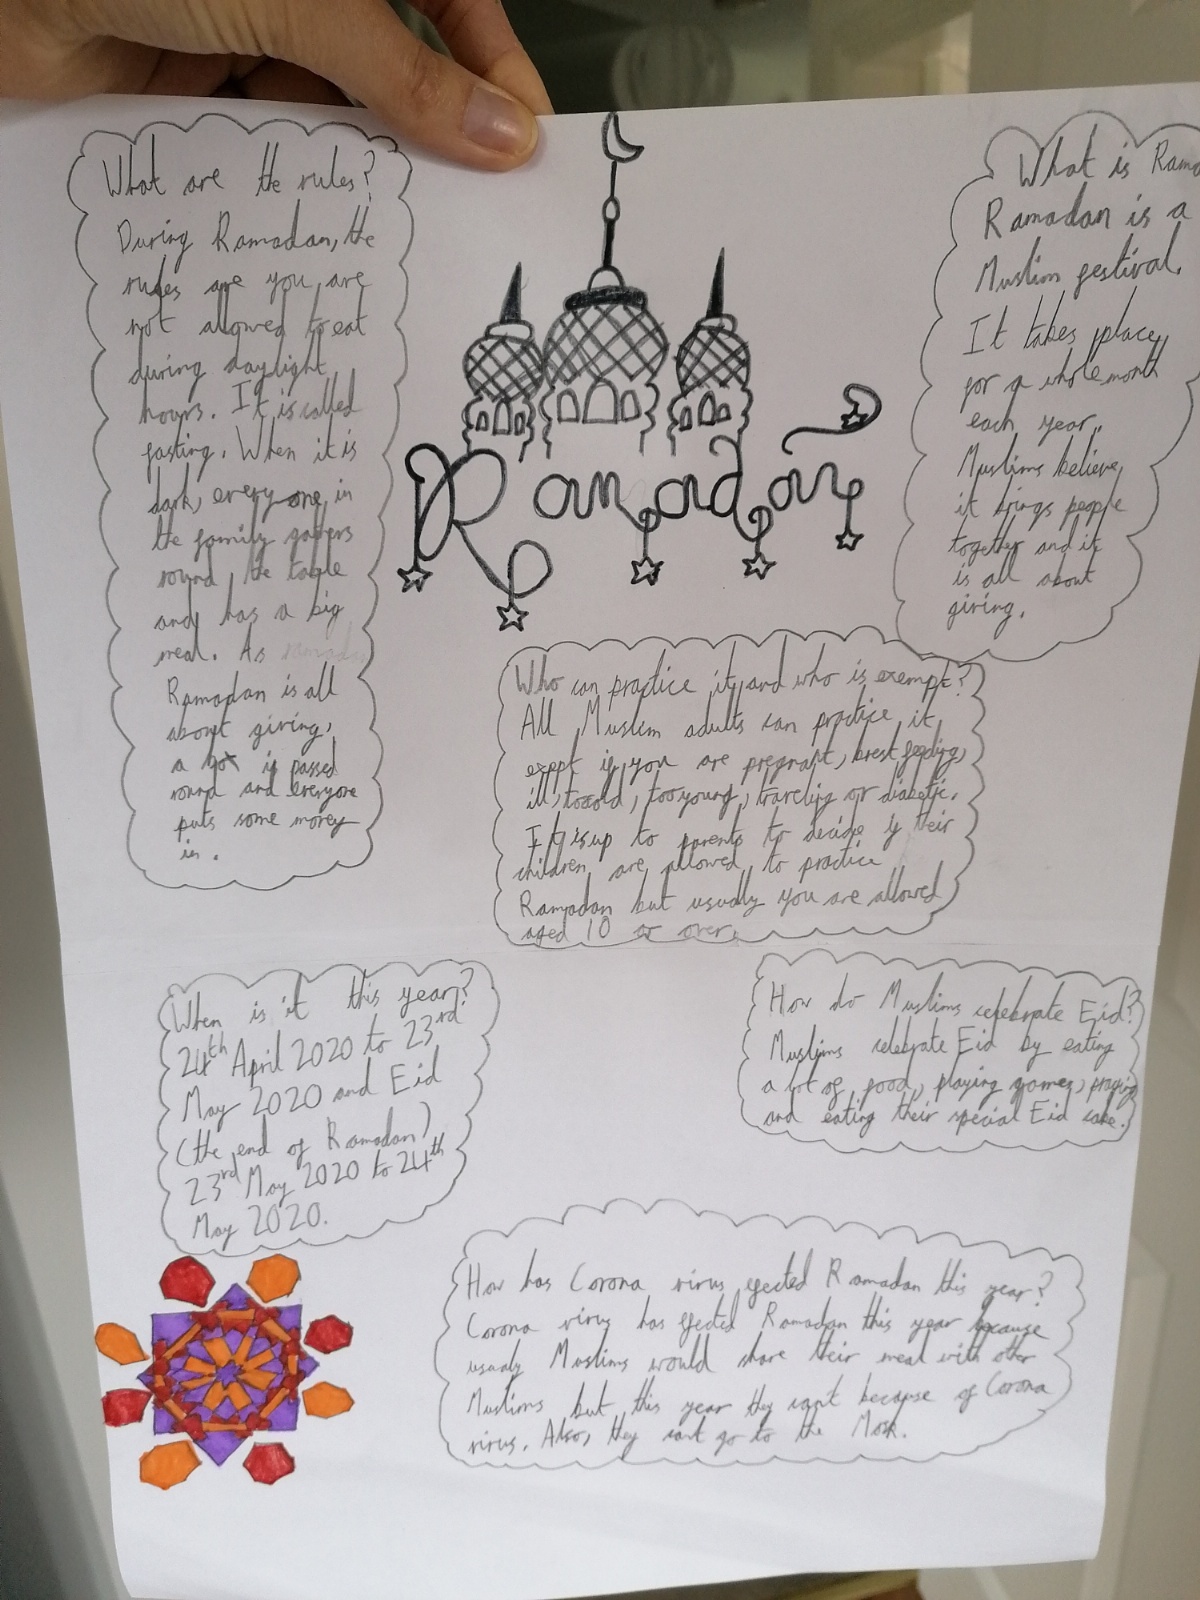 What are the rules?
During Ramadan, the
rules are you are
not allowed to eat
during daylight
hours. It is called
fasting. When it is
dark, every one in
the family gathers
round the table
and has a big
meal. As ramadan
Ramadan is all
about giving,
a box is passed
round and everyone
puts some money
in.
Ramadan
What is
Ramadan is a
Muslim festival.
It takes place
for a whole month
each year.
Muslims believe
it brings people
together and it
is all about
giving.
Who can practice it and who is exempt?
All Muslim adults can practice it
exept if you are pregnant, brest feeding,
ill, too old, too young, traveling or diabetic.
It is up to parents to decide if their
children are allowed to practice
Ramadan but usually you are allowed
aged 10 or over.
When is it this year?
24th April 2020 to 23rd
May 2020 and Eid
(the end of Ramadan)
23rd May 2020 to 24th
May 2020.
How do Muslims celebrate Eid?
Muslims celebrate Eid by eating
a lot of food, playing games, praying
and eating their special Eid cake.
How has Corona virus efected Ramadan this year?
Corona virus has efected Ramadan this year because
usualy Muslims would share their meal with other
Muslims but this year they cant because of Corona
virus. Also, they cant go to the Mosk.